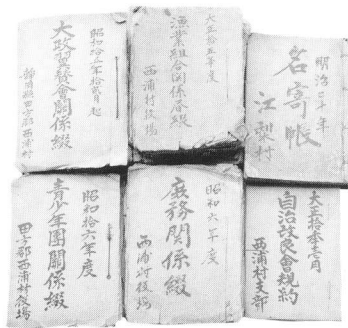 明治三十年
名寄帳
江梨村
大正拾五年度
漁業組合関係書綴
西浦村役場
昭和拾五年拾貳月起
大政翼賛會關係綴
静岡縣田方郡西浦村
大正拾年壱月
自治改良會規約
西浦村支部
昭和六年度
庶務關係綴
西浦村役場
昭和拾六年度
青少年團關係綴
田方郡西浦村役場